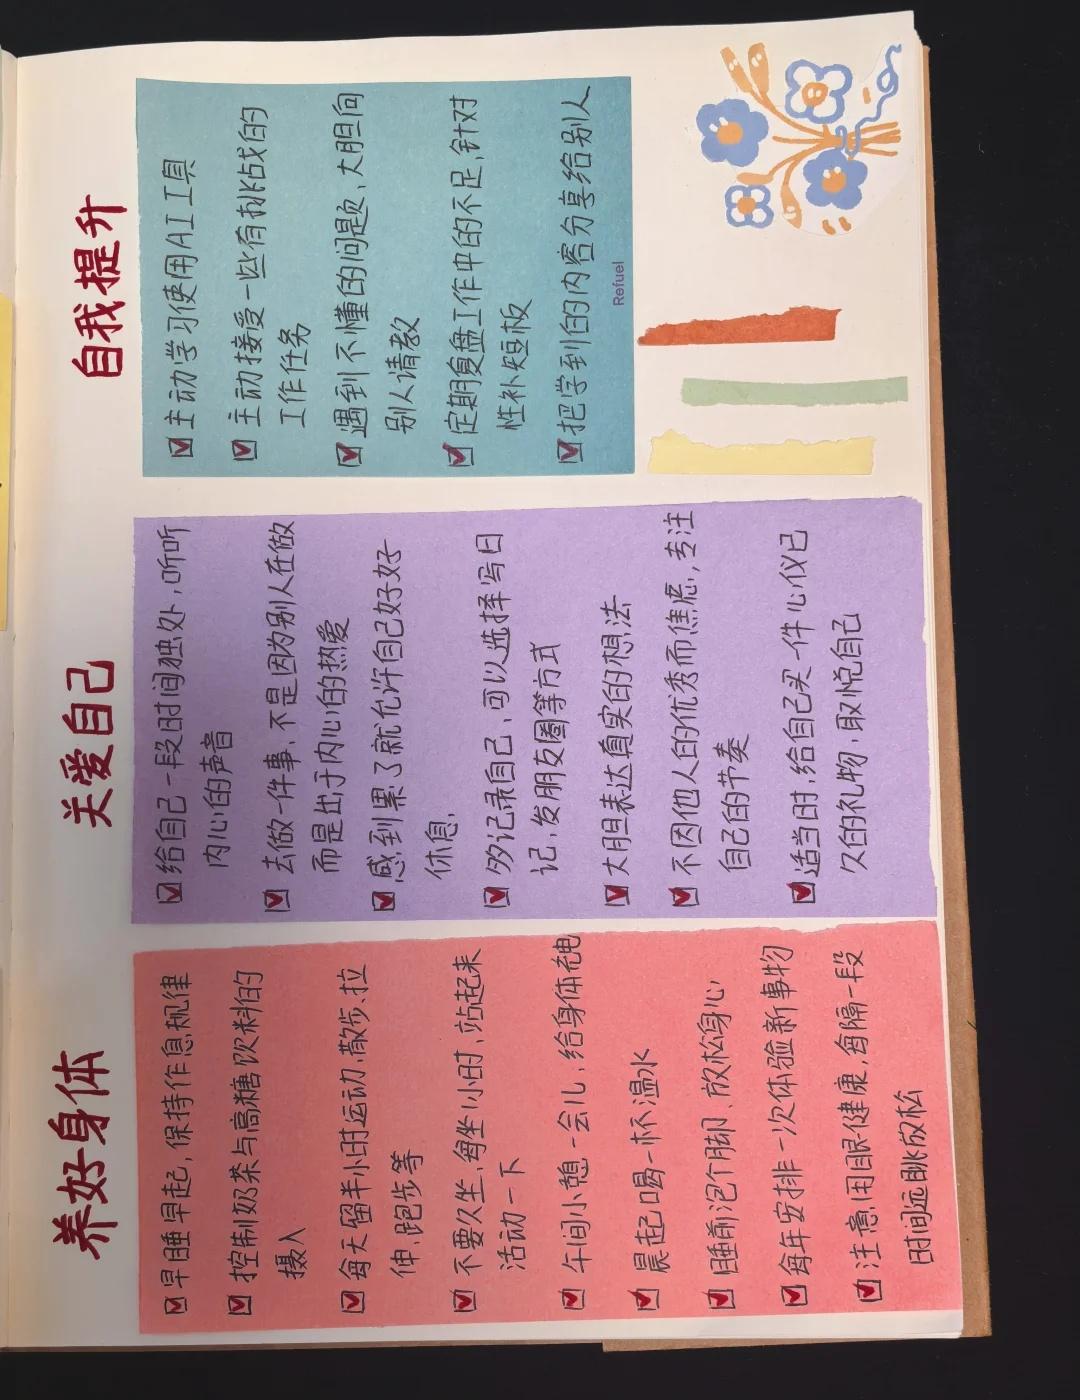 养好身体
早睡早起，保持作息规律
控制奶茶与高糖饮料的
摄入
每天留半小时运动，散步、拉
伸、跑步等
不要久坐，每坐1小时，站起来
活动一下
午间小憩一会儿，给身体充电
晨起喝一杯温水
睡前泡个脚、放松身心
每年安排一次体验新事物
注意用眼健康，每隔一段
时间远眺放松
关爱自己
给自己一段时间独处，听听
内心的声音
去做一件事，不是因为别人在做
而是出于内心的热爱
感到累了就允许自己好好
休息，
多记录自己，可以选择写日
记，发朋友圈等方式
大胆表达真实的想法
不因他人的优秀而焦虑，专注
自己的节奏
适当时，给自己买一件心仪已
久的礼物，取悦自己
自我提升
主动学习使用AI工具
主动接受一些有挑战的
工作任务
遇到不懂的问题、大胆向
别人请教
定期复盘工作中的不足，针对
性补短板
把学到的内容分享给别人
Refuel